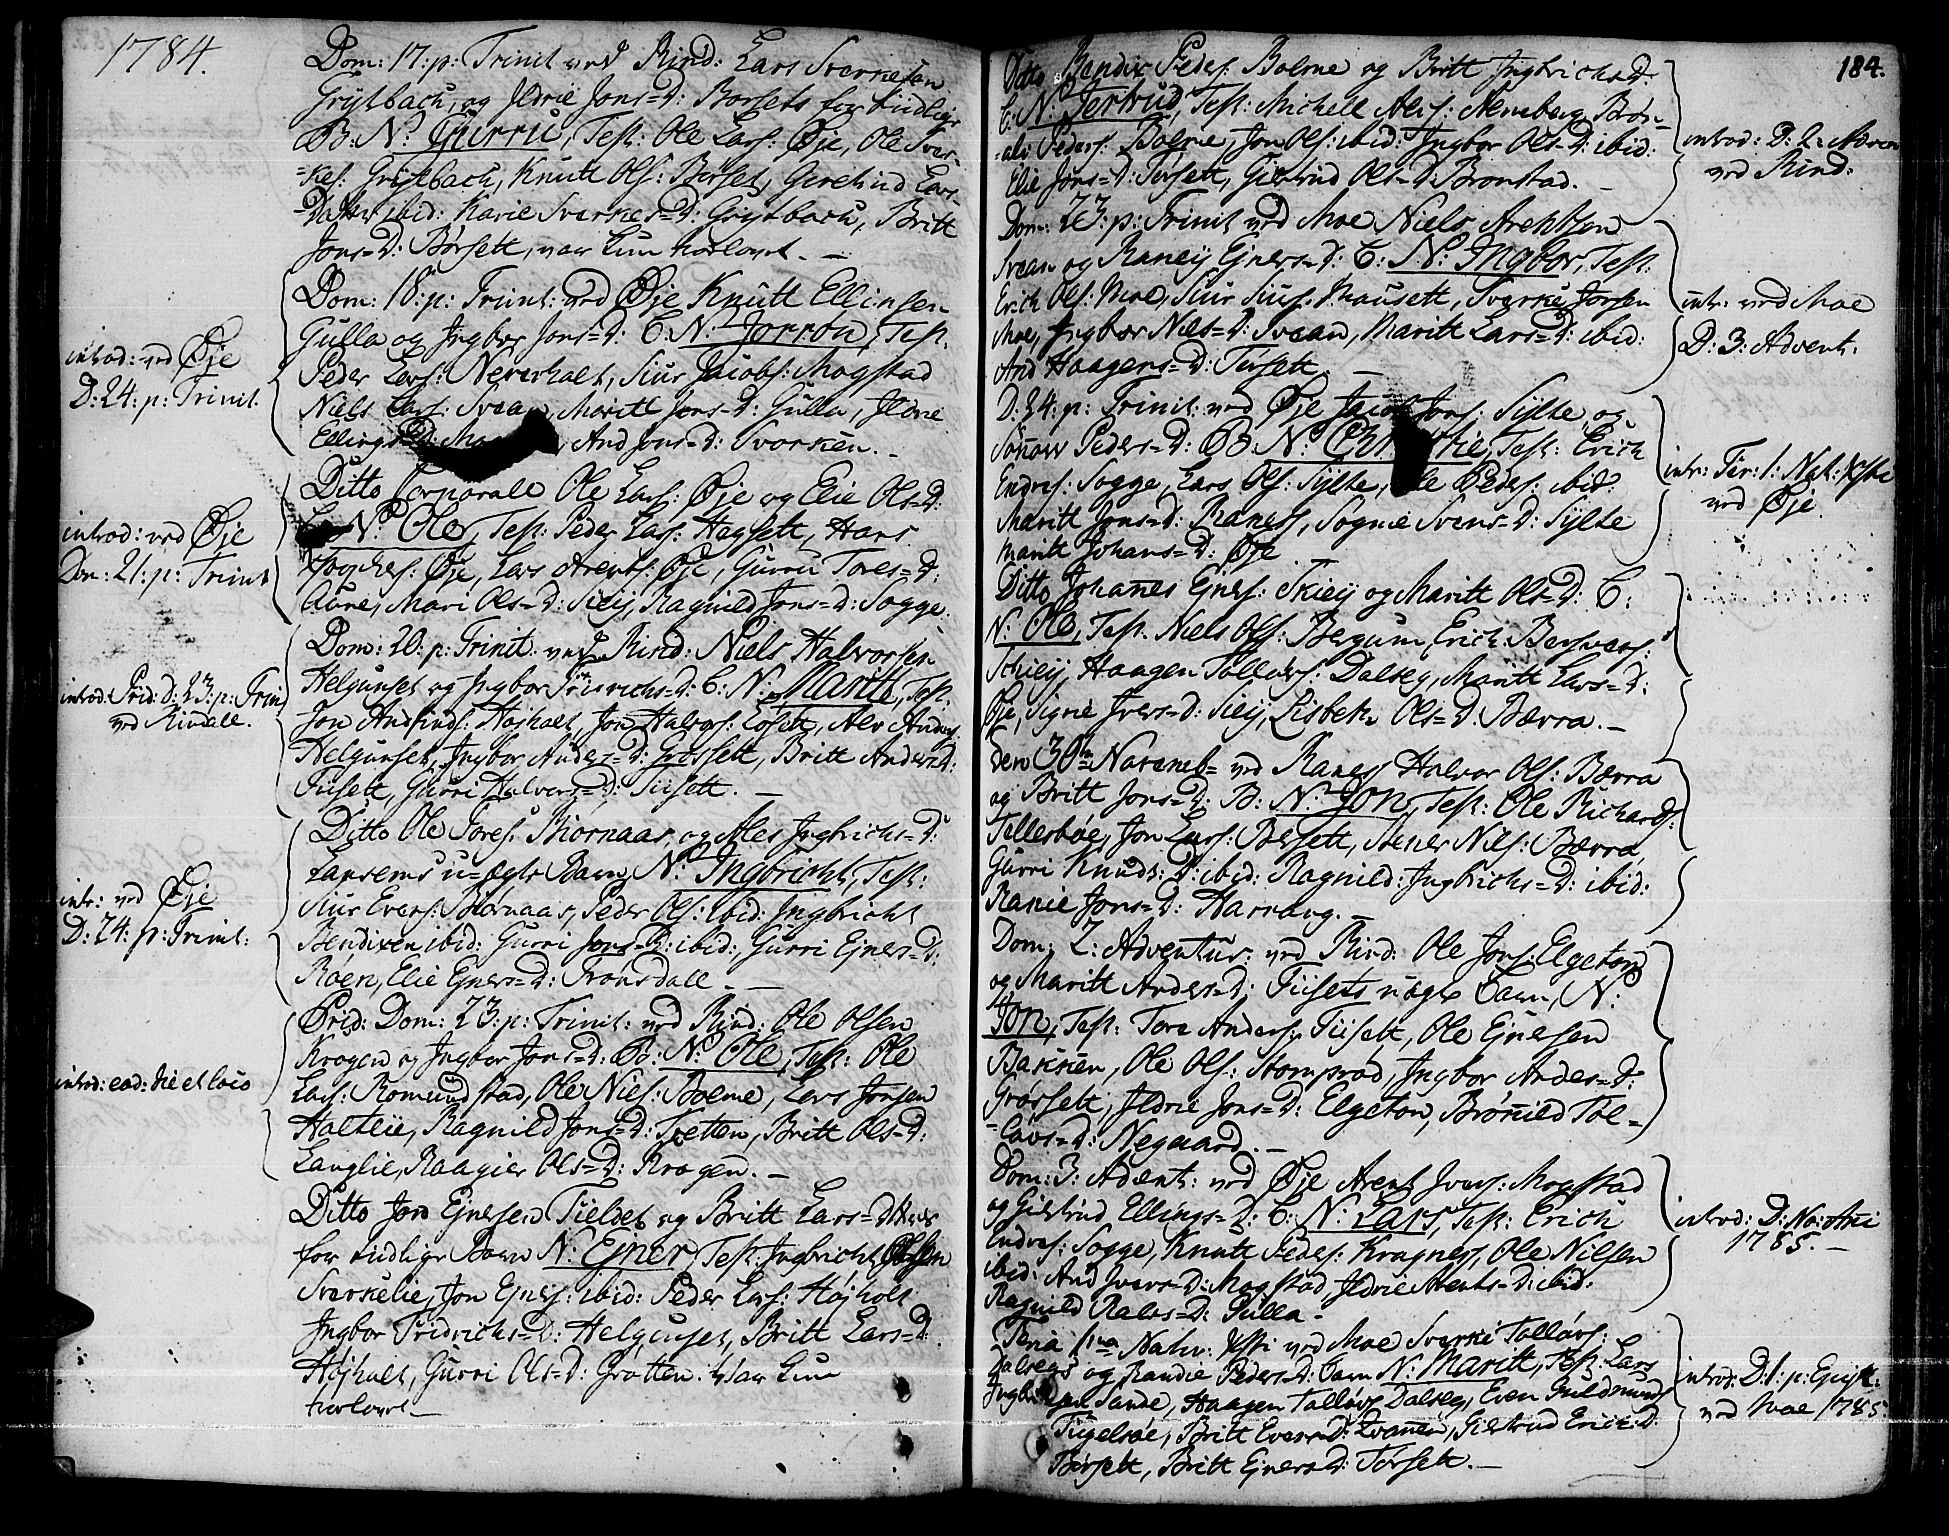 1784.
Dom: 17: p: Trinit ved Rind: Lars Sverkesen
Grytbach, og Jldrie Jons=D: Borsets for tiidlige
B: N: Gurru, Test: Ole Lars: Øje, Ole Sver=
=kes: Grytbach, Knutt Ols: Børset, Geretrud Lars=
=Datter ibid: Karie Sverkes=D: Grytbach, Britt
Jons=D: Børsett, var kun trolovet. —
introd: ved Øje
D: 24: p: Trinit.
Dom: 18: p: Trinit: ved Øje Knutt Ellingsen
Gulla og Jngbor Jons=D: B: N: Jorron, Test.
Peder Lars: Neverholt, Siur Jacobs: Mogstad
Niels Lars: Svean, Maritt Jons=D: Gulla, Jldrie
Ellings=D: And Jons=D: Svorken. –
introd: ved Øje
Dom: 21: p: Trinit
Ditto Corporale Ole Lars: Øje og Elie Ols=D:
N: Ole, Test: Peder Lars: Hagsett, Hans
Øje, Lars Arents: Øje, Gurru Tores=D:
Aune, Mari Ols=D: Sieij, Ragnild Jons=D: Sogge.
introd: Prid: D: 23: p: Trin
ved Rindale.
Dom: 20: p: Trinit. ved Rind: Niels Halvorsen
Helgunset og Jngbor Fridrichs=D: B: N: Maritt, Test.
Jon Andfinds: Højholt, Jon Halvors: Løsett, Alv Anders
Helgunset, Jngbor Anders=D: Grøssett, Britt Anders=D:
Tiisett, Gurri Halvors=D: Tiisett. —
intr: ved Øje
D: 24: p: Trinit:
Ditto Ole Tores: Biørnaas, og Ales Jngbrichs=D:
Lansems u=ægte Barn, N: Jngbricht, Test:
Siur Evers: Biørnaas, Peder Ols: ibid: Jngbricht
Bendixen ibid: Gurri Jons=D: ibid:, Gurri Ejners=D:
Røen, Elie Ejners=D: Tronsdall. —
introd: ead: die et loco
Prid: Dom: 23: p: Trinit: ved Rind: Ole Olsen
Krogen og Jngbor Jons=D: B: N: Ole, Test: Ole
Lars: Romundstad, Ole Niels: Bolme, Lars Jonsen
Holtliie, Ragnild Jons=D: Tretten, Britt Ols=D:
Langlie, Raagier Ols=D: Krogen. —
Ditto Jon Ejnersen Tieldet og Britt Lars=Datters
for tiidlige Barn N: Ejner, Test: Jngbricht Olsen
Sverkelie, Jon Ejners: ibid: Peder Lars: Højholt
Jngbor Fridrichs=D: Helgunset, Britt Lars=D:
Højholt, Gurri Ols=D: Grotten: var kun
trolovet —
184.
Ditto Bendix Peders: Bolme og Britt Jngbrichs=D:
B: N: Gertrud, Test: Michell Alefs: Nemberg, Brøn=
=alv Peders: Bolme, Jon Ols: ibid: Jngbor Ols=D: ibid:
Elie Jons=D: Tørsett, Giertrud Ols=D: Bronstad. —
introd: D: 2: Adven
ved Rind:
Dom: 23: p: Trinit ved Moe Niels Arentsen
Svean og Raneij Ejners=D: B: N: Jngbor, Test:
Erich Ols: Moe, Siur Siurs: Mausett, Sverke Jonsen
Moe, Jngbor Niels=D: Svean, Maritt Lars=D: ibid:
And Haagens=D: Tørsett. —
intr: ved Moe
D: 3: Advent.
D: 24: p: Trinit: ved Øje Jacob Jons: Sylte, og
Sønnow Peders=D: B: N: Test: Erich
Endres: Sogge, Lars Ols: Sylte, Ole Peders: ibid:
Maritt Jons=D: Raness, Sognie Svens=D: Sylte
Maritt Johans=D: Øje
intr: Fer: 1: Nat: Xsti
ved Øje.
Ditto Johannes Ejners: Skieij og Maritt Ols=D: B:
N: Ole, Test. Niels Ols: Bergum, Erich Bersvens:
Schieij, Haagen Tollevs: Dalseg, Maritt Lars=D:
Øje, Signe Jvers=D: Sieij, Lisbeth Ols=D: Bævra. —
den 30te Novemb= ved Raness Halvor Ols: Bævra
og Britt Jons=D: B: N: JON, Test: Ole Richards:
Tellesbøe, Jon Lars: Børsett, Stener Niels: Bævra,
Gurri Knuds=D: ibid: Ragnild: Jngbrichs=D: ibid:
Ranie Jons=D: Harvang. —
Dom: 2: Adventus: ved Rind: Ole Jons: Elgeton
og Maritt Anders=D: Tiisets uægte Barn, N:
JON, Test: Tore Anders: Tiisett, Ole Ejnersen
Bakken, Ole Ols: Stomprød, Jngbor Anders=D:
Grøssett, Jldrie Jons=D: Elgeton, Brønild Tol=
=lovs=D: Negaard. —
Dom: 3: Advent: ved Øje Arent Jvers: Mogstad
og Giertrud Ellings=D: B: N: Lars, Test: Erich
Endres: Sogge, Knutt Peders: Kragness, Ole Nilsen
ibid: And Jvers=D: Mogstad, Jldrie Arents=D: ibid:
Ragnild Rales=D: Gulla —
introd: D: No: Ani
1785. —
Feria 1ma Nativ: Xsti ved Moe Sverke Tollovs:
Dalsegs og Randie Peders=D: Barn N: Maritt, Test: Lars
Sande, Haagen Tollovs: Dalseg, Even Guldmunds
Tiigelsøe, Britt Evens=D: Kvannen, Giertrud Erichs=D:
Børsett, Britt Ejners=D: Torsett. —
introd: D: 1: p: Epiph:
ved Moe 1785